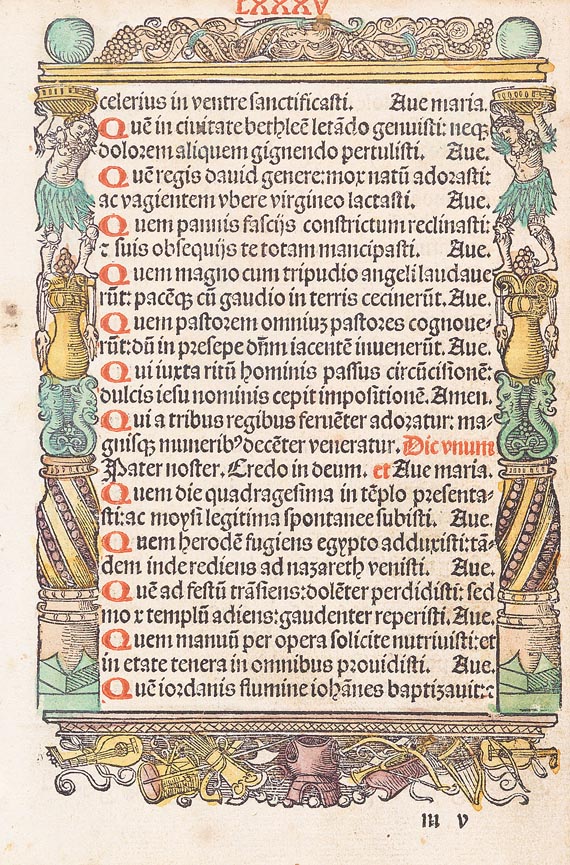 LXXXV
celerius in ventre sanctificasti. Aue maria.
Quē in ciuitate bethleē letādo genuisti: neqꝫ
dolorem aliquem gignendo pertulisti. Aue.
Quē regis dauid genere: mox natū adorasti:
ac vagientem vbere virgineo lactasti. Aue.
Quem pannis fascijs constrictum reclinasti:
⁊ suis obsequijs te totam mancipasti. Aue.
Quem magno cum tripudio angeli laudaue
rūt: pacēqꝫ cū gaudio in terris cecinerūt. Aue.
Quem pastorem omniuꝫ pastores cognoue⸗
rūt: dū in presepe dn̄m iacentē inuenerūt. Aue.
Qui iuxta ritū hominis passus circūcisionē:
dulcis iesu nominis cepit impositionē. Amen.
Qui a tribus regibus feruēter adoratur: ma⸗
gnisqꝫ muneribꝰ decēter veneratur. Dic vnum
Pater noster. Credo in deum. et Aue maria.
Quem die quadragesima in tēplo presenta⸗
sti: ac moysi legitima spontanee subisti. Aue.
Quem herodē fugiens egypto adduxisti: tā⸗
dem inde rediens ad nazareth venisti. Aue.
Quē ad festū trāsiens: dolēter perdidisti: sed
mox templū adiens: gaudenter reperisti. Aue.
Quem manuū per opera solicite nutriuisti: et
in etate tenera in omnibus prouidisti. Aue.
Quē iordanis flumine iohānes baptizauit: ⁊
m v